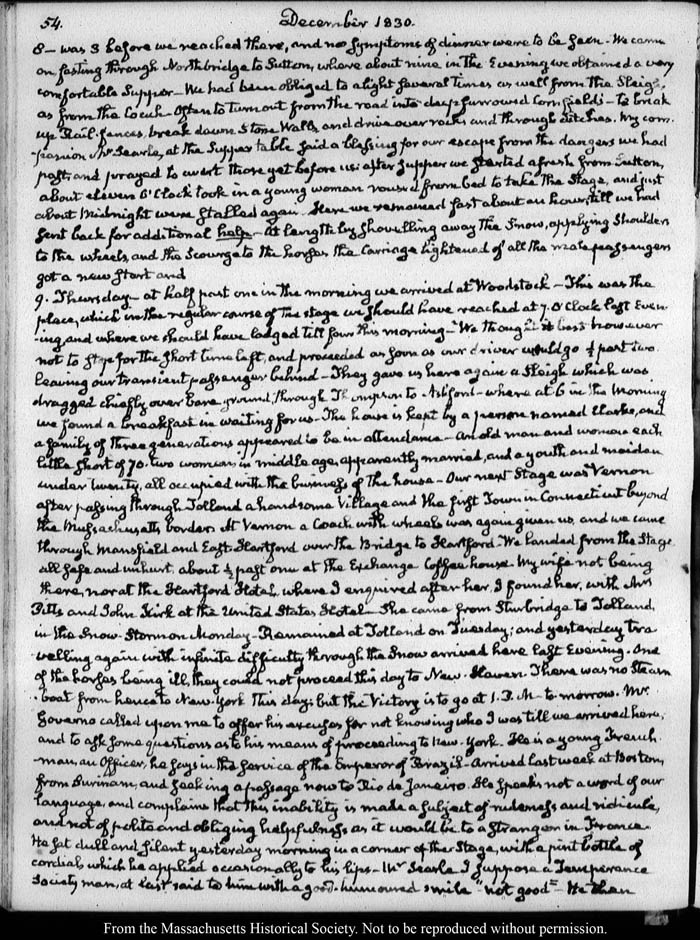 54. December 1830.
8— was 3 before we reached there, and no symptoms of dinner were to be seen. We came
on fasting through Northbridge to Sutton, where about nine in the Evening we obtained a very
comfortable Supper— We had been obliged to alight several times as well from the Sleigh,
as from the Coach— Often to turn out from the road into deep furrowed Cornfields— to break
up Rail-fences, break down Stone Walls, and drive over rocks and through ditches. My com-
-panion Mr Searle, at the Supper table said a blessing for our escape from the dangers we had
past, and prayed to avert those yet before us: after Supper we started afresh from Sutton,
about eleven O'Clock took in a young woman roused from bed to take the Stage, and just
about Midnight were stalled again. Here we remained fast about an hour, till we had
sent back for additional help— At length by shovelling away the Snow, applying Shoulders
to the wheels, and the Scourge to the horses the Carriage lightened of all the male passengers
got a new start and
9. Thursday— at half past one in the morning we arrived at Woodstock— This was the
place, which in the regular course of the stage we should have reached at 7. O'Clock last Even-
-ing and where we should have lodged till four this morning— We thought it best however
not to stop for the short time left, and proceeded as soon as our driver would go ½ past two.
leaving our transient passenger behind— They gave us here again a Sleigh which was
dragged chiefly over bare ground, through Thompson to Ashford— where at 6 in the Morning
we found a breakfast in waiting for us. The house is kept by a person named Clarke, and
a family of three generations appeared to be in attendance— An old man and woman each
little short of 70. two women in middle age, apparently married, and a youth and maiden
under twenty, all occupied with the business of the house— Our next Stage was Vernon
after passing through Tolland a handsome Village and the first Town in Connecticut beyond
the Massachusetts border. At Vernon a Coach with wheels was again given us, and we came
through Mansfield and East-Hartford over the Bridge to Hartford. We landed from the Stage
all safe and unhurt, about ½ past one at the Exchange Coffee house. My wife not being
there, nor at the Hartford Hotel, where I enquired after her, I found her, with Mrs
Pitts and John Kirk at the United States Hotel— She came from Sturbridge to Tolland,
in the Snow-Storm on Monday— Remained at Tolland on Tuesday; and yesterday tra-
-velling again with infinite difficulty through the Snow arrived here last Evening. One
of the horses being ill, they could not proceed this day to New-Haven. There was no Steam
-boat from hence to New-York This day; but the Victory is to go at 1. P.M. to-morrow. Mr
Governo called upon me to offer his excuses for not knowing who I was till we arrived here;
and to ask some questions as to his means of proceeding to New-York. He is a young French-
man, an Officer, he says in the service of the Emperor of Brazil— Arrived last week at Boston,
from Surinam, and seeking a passage now to Rio de Janeiro. He speaks not a word of our
language, and complains that this inability is made a subject of rudeness and ridicule,
and not of polite and obliging helpfulness as it would be to a stranger in France.
He sat dull and silent yesterday morning in a corner of the Stage, with a pint bottle of
cordial, which he applied occasionally to his lips— Mr Searle I suppose a Temperance
Society man, at last said to him with a good-humoured smile "not good"— He then
From the Massachusetts Historical Society. Not to be reproduced without permission.